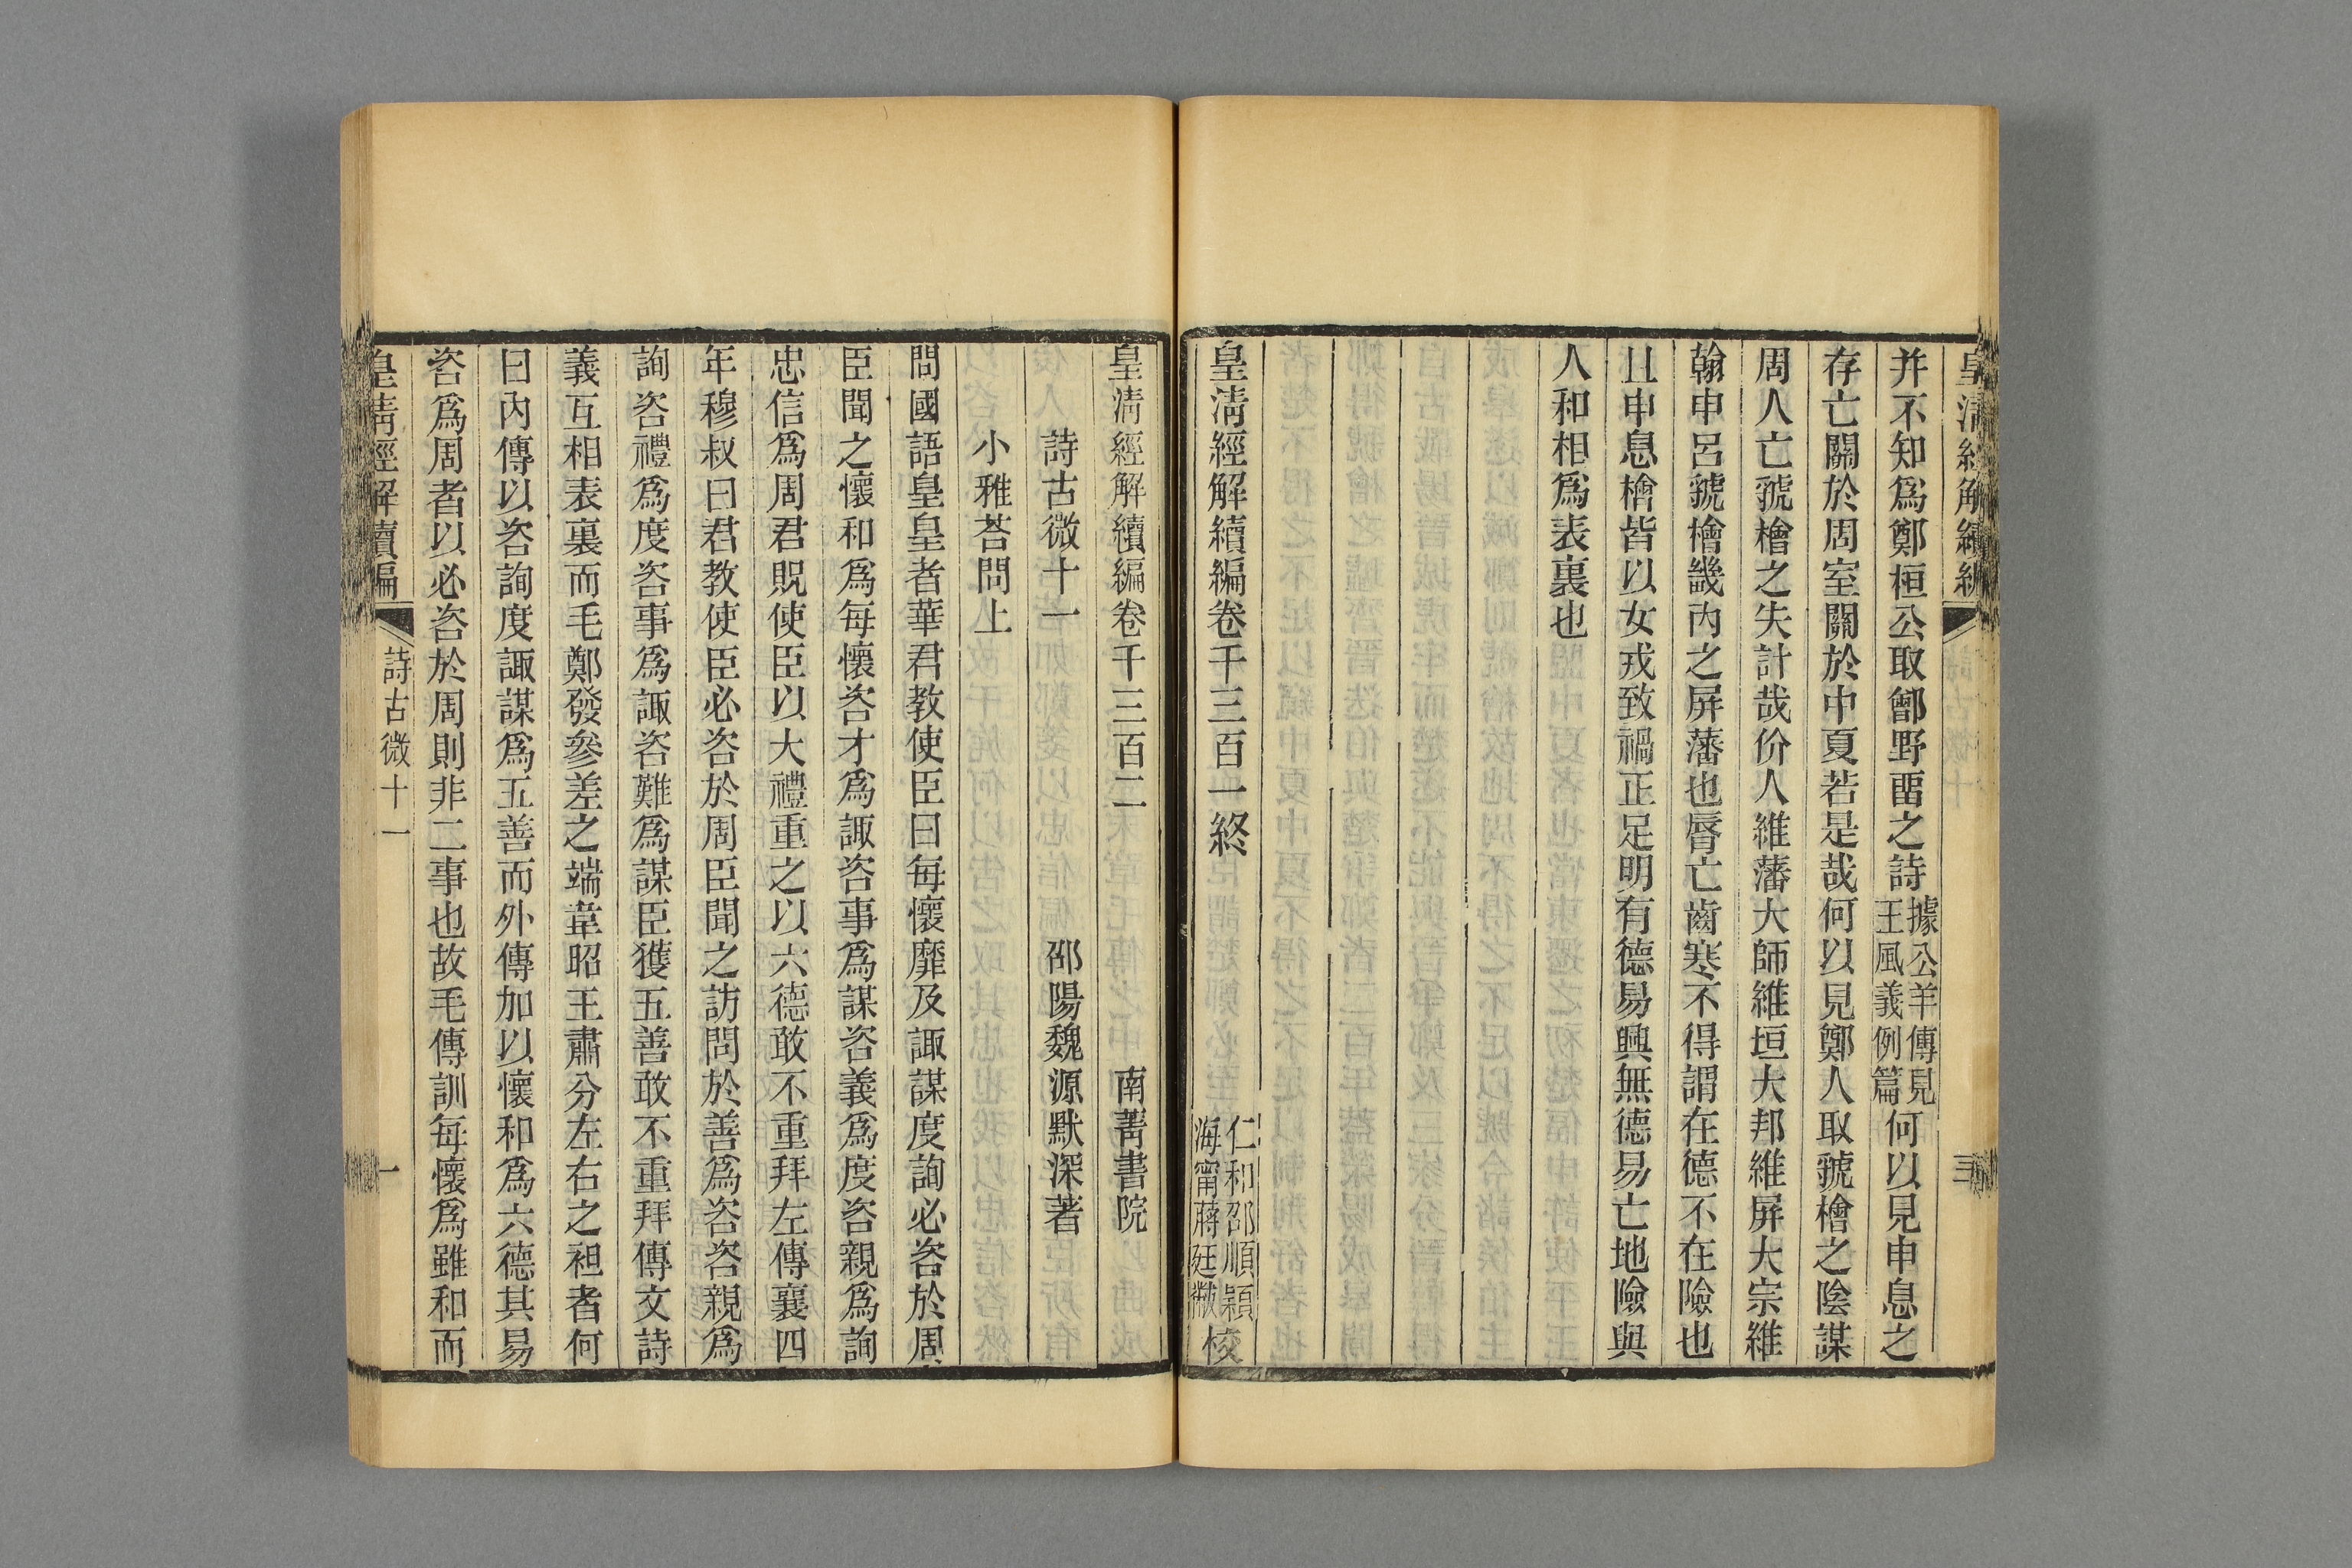 皇清經解續編
三
并不知爲鄭桓公取鄶野畱之詩據公羊傳見王風義例篇何以見申息之
存亡關於周室關於中夏若是哉何以見鄭人取虢檜之陰謀
周人亡虢檜之失計哉价人維藩大師維垣大邦維屏大宗維
翰申呂虢檜畿內之屏藩也脣亡齒寒不得謂在德不在險也
且申息檜皆以女戎致禍正足明有德易興無德易亡地險與
人和相爲表裏也
皇清經解續編卷千三百一終
仁和邵順穎
海甯蔣廷黻
校
皇清經解續編卷千三百二
南菁書院
詩古微十一
邵陽魏源默深著
小雅荅問上
問國語皇皇者華君教使臣曰每懷靡及諏謀度詢必咨於周
臣聞之懷和爲每懷咨才爲諏咨事爲謀咨義爲度咨親爲詢
忠信爲周君貺使臣以大禮重之以六德敢不重拜左傳襄四
年穆叔曰君教使臣必咨於周臣聞之訪問於善爲咨咨親爲
詢咨禮爲度咨事爲諏咨難爲謀臣獲五善敢不重拜傳文詩
義互相表裏而毛鄭發參差之端韋昭王肅分左右之袒者何
曰內傳以咨詢度諏謀爲五善而外傳加以懷和爲六德其易
咨爲周者以必咨於周則非二事也故毛傳訓每懷爲雖和而
皇清經解續編
詩古微十一
一